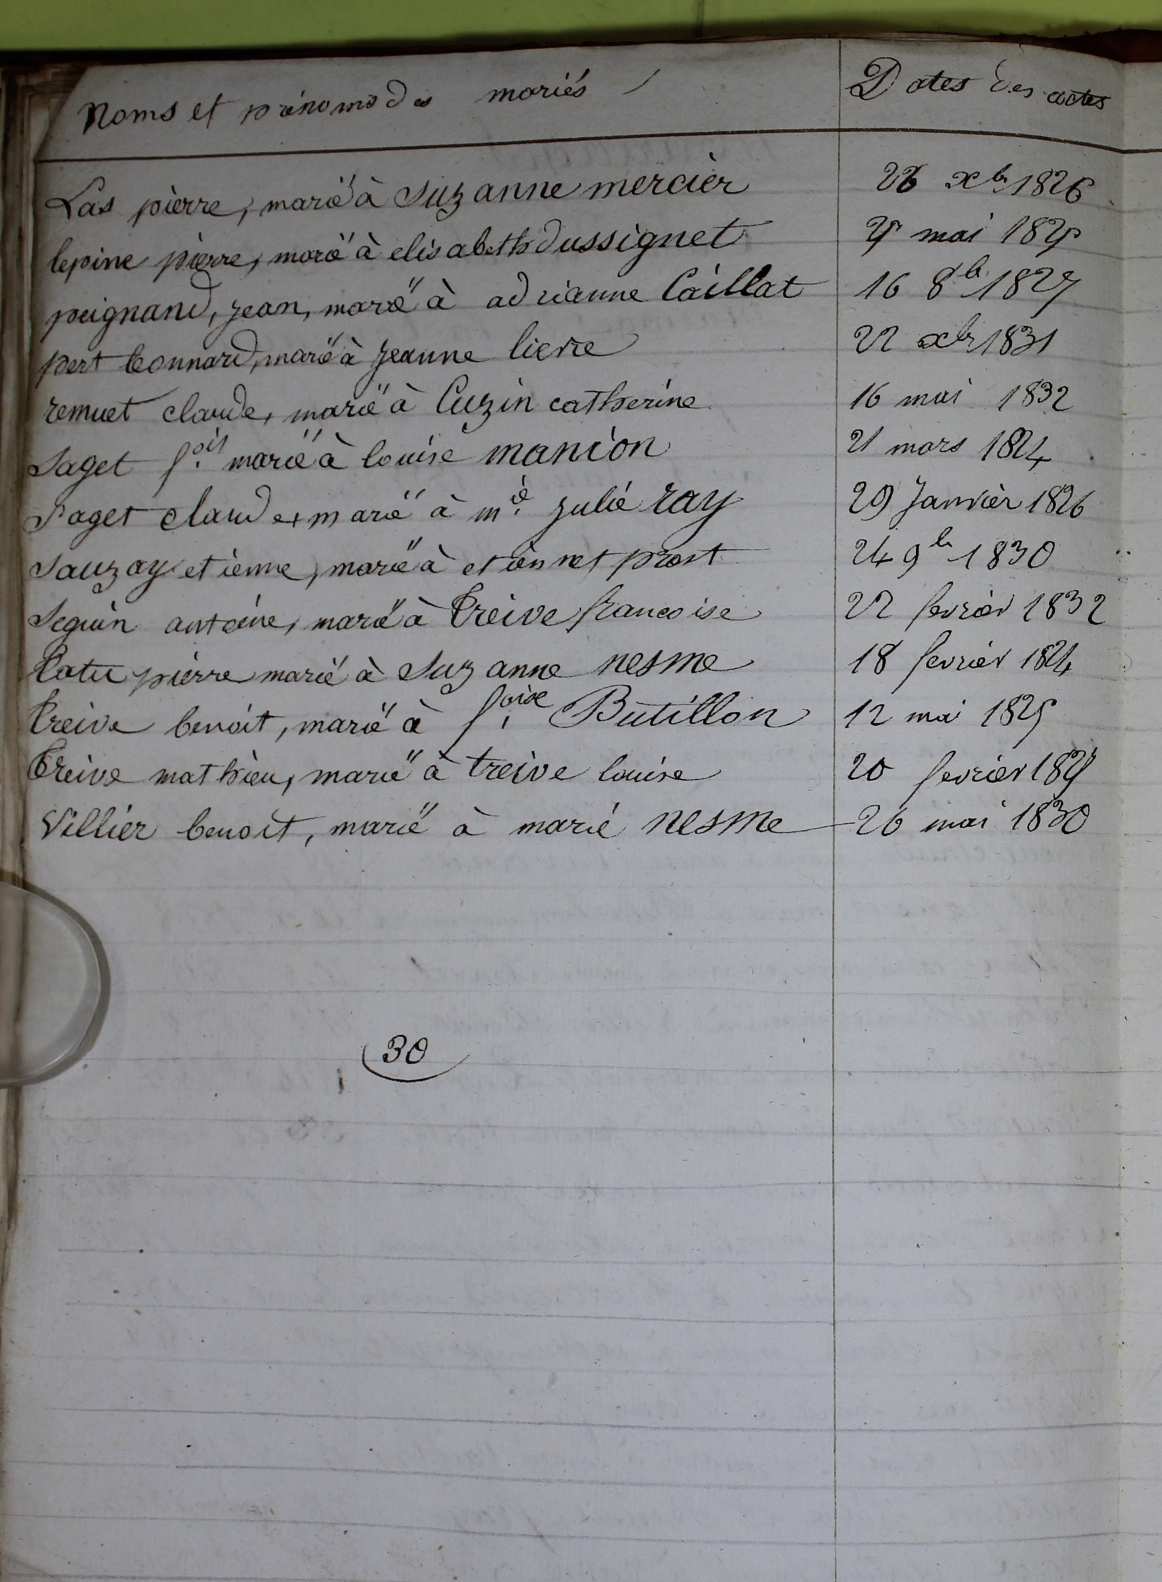 Noms et prénoms des mariés
Dates des actes
Las pierre, marié à Suzanne mercier 26 xbr 1826
lepine pierre, marié à elisabeth dussignet mai
peignand, jean, marié à adrianne Caillat 16 8b 1827
pert leonnard, marié à jeanne lievre 22 xbr 1831
remuet claude, marié à Cuzin catherine 16 mai 1832
Saget f.ois marié à louise manion 21 mars 1824
Saget claude, marié à m.ie julie ray 29 Janvier 1826
Sauzay etienne, marié à etiennet prost 24 9b 1830
Seguin antoine, marié à Treive francoise 22 fevrier 1832
pierre marié à Suzanne nesme 18 fevrier 1824
Treive benoit, marié à f.oise Butillon 12 mai 1825
Treive mathieu, marié à treive louise 20 fevrier
Villier benoit, marié à marie nesme 26 mai 1830
30